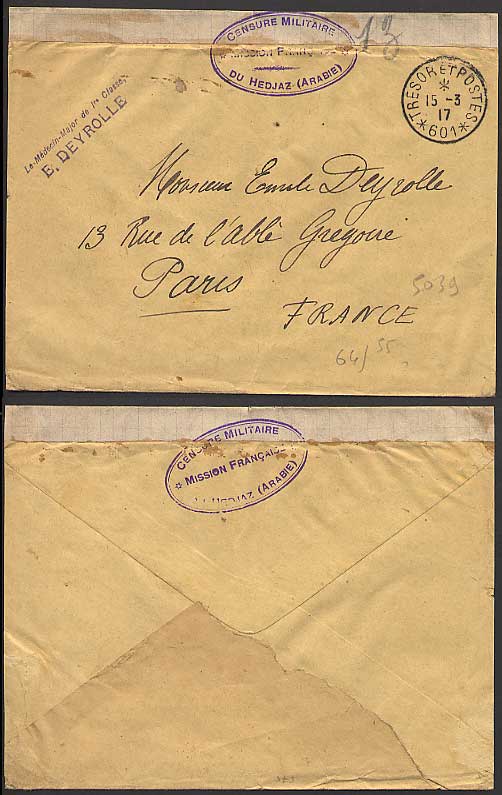 CENSURE MILITAIRE
MISSION FRANÇ
DU HEDJAZ (ARABIE)
13
Le Médecin-Major de 1re Classe,
E. DEYROLLE
TRESOR ET POSTES
15 -3
17
*601*
Monsieur Emile Deyrolle
13 Rue de l'abbé Gregoire
Paris
FRANCE
5039
64/55
CENSURE MILITAIRE
MISSION FRANÇAISE
HEDJAZ (ARABIE)